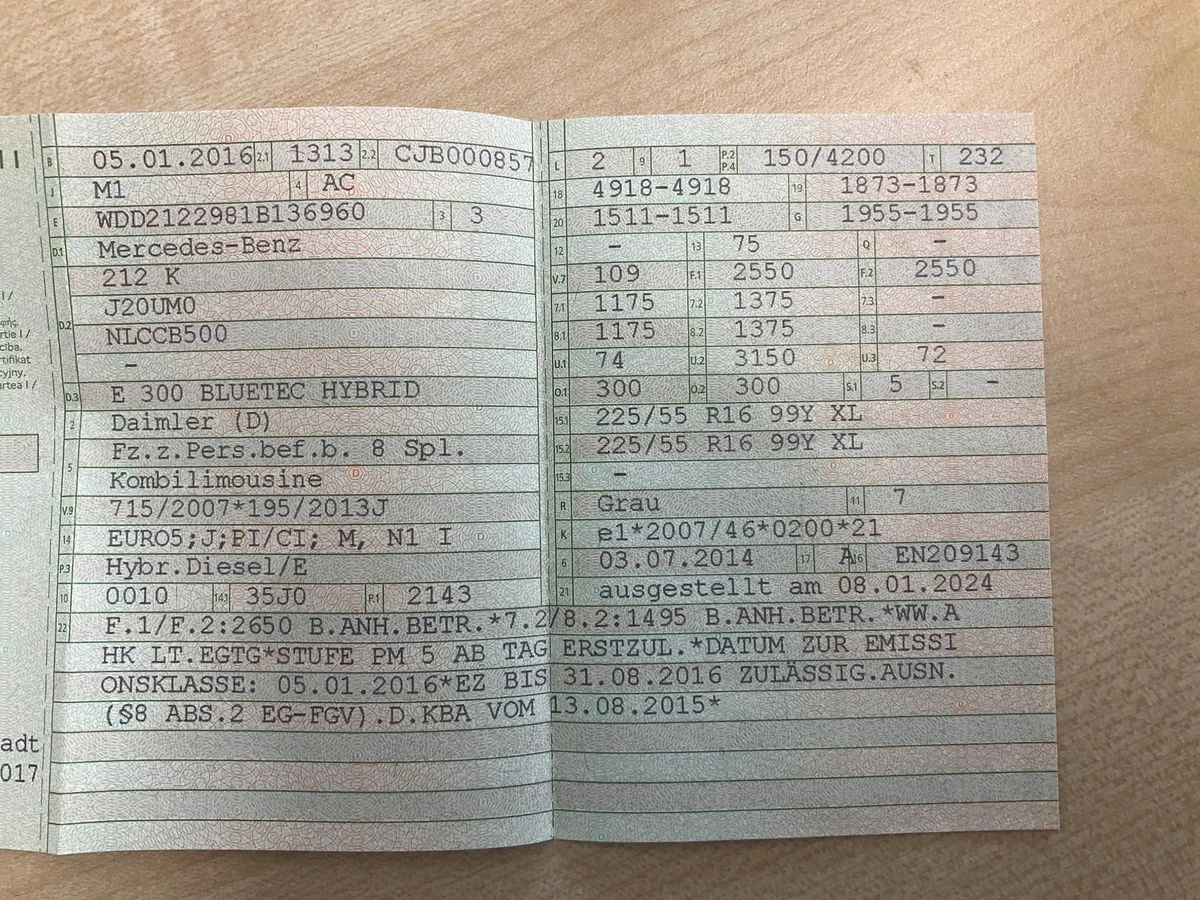 II
B 05.01.2016 2.1 1313 2.2 CJB000857
J M1 4 AC
E WDD2122981B136960 3 3
D.1 Mercedes-Benz
212 K
J20UM0
D.2 NLCCB500
–
D.3 E 300 BLUETEC HYBRID
2 Daimler (D)
Fz.z.Pers.bef.b. 8 Spl.
5 Kombilimousine
V.9 715/2007*195/2013J
14 EURO5;J;PI/CI; M, N1 I
P.3 Hybr.Diesel/E
10 0010 14.1 35J0 P.1 2143
L 2 9 1 P.2 P.4 150/4200 T 232
18 4918-4918 19 1873-1873
20 1511-1511 G 1955-1955
12 – 13 75 Q –
V.7 109 F.1 2550 F.2 2550
7.1 1175 7.2 1375 7.3 –
8.1 1175 8.2 1375 8.3 –
U.1 74 U.2 3150 U.3 72
O.1 300 O.2 300 S.1 5 S.2 –
15.1 225/55 R16 99Y XL
15.2 225/55 R16 99Y XL
15.3 –
R Grau 11 7
K e1*2007/46*0200*21
6 03.07.2014 17 A 16 EN209143
21 ausgestellt am 08.01.2024
22 F.1/F.2:2650 B.ANH.BETR.*7.2/8.2:1495 B.ANH.BETR.*WW.A
HK LT.EGTG*STUFE PM 5 AB TAG ERSTZUL.*DATUM ZUR EMISSI
ONSKLASSE: 05.01.2016*EZ BIS 31.08.2016 ZULÄSSIG.AUSN.
(§8 ABS.2 EG-FGV).D.KBA VOM 13.08.2015*
adt
017